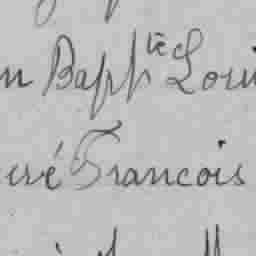 n Bapte Loui
uré Francois